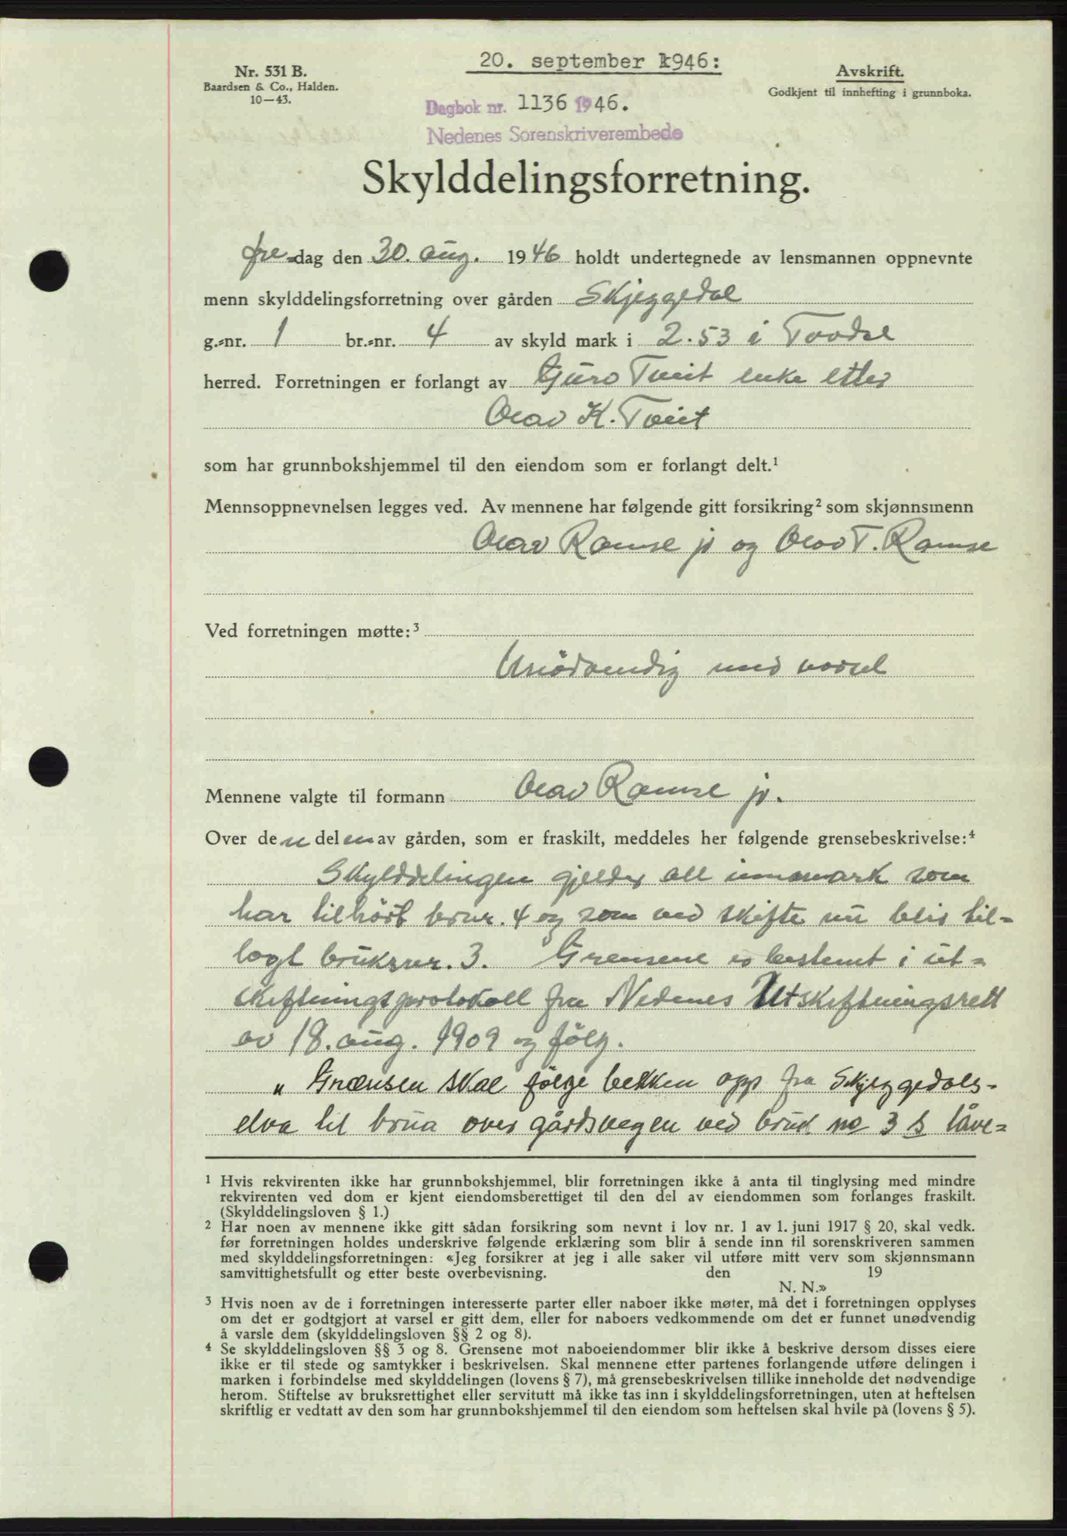 20. september 1946:
Nr. 531 B.
Baardsen & Co., Halden.
10—43.
Avskrift.
Godkjent til innhefting i grunnboka.
Dagbok nr. 1136 1946.
Nedenes Sorenskriverembede
Skylddelingsforretning.
fre-dag den 30. aug. 1946 holdt undertegnede av lensmannen oppnevnte
menn skylddelingsforretning over gården Skjeggedal
g.-nr. 1 br.-nr. 4 av skyld mark i 2.53 i Tovdal
herred. Forretningen er forlangt av Guro Tveit enke etter
Olav K. Tveit
som har grunnbokshjemmel til den eiendom som er forlangt delt.¹
Mennsoppnevnelsen legges ved. Av mennene har følgende gitt forsikring² som skjønnsmenn
Olav Ramse jr og Olav T. Ramse
Ved forretningen møtte:³
Unödvendig med varsel
Mennene valgte til formann Olav Ramse jr.
Over den delen av gården, som er fraskilt, meddeles her følgende grensebeskrivelse:⁴
Skylddelingen gjelder all innmark som
har tilhört brnr. 4 og som ved skifte nu blir til=
lagt bruksnr. 3. Grensene er bestemt i ut=
skiftningsprotokoll fra Nedenes Utskiftningsrett
av 18. aug. 1909 og följ.
" Grænsen skal følge bekken opp fra Skjeggedals-
elva til brua over gårdsvegen ved bruk no 3 s låve=
¹ Hvis rekvirenten ikke har grunnbokshjemmel, blir forretningen ikke å anta til tinglysing med mindre
rekvirenten ved dom er kjent eiendomsberettiget til den del av eiendommen som forlanges fraskilt.
(Skylddelingsloven § 1.)
² Har noen av mennene ikke gitt sådan forsikring som nevnt i lov nr. 1 av 1. juni 1917 § 20, skal vedk.
før forretningen holdes underskrive følgende erklæring som blir å sende inn til sorenskriveren sammen
med skylddelingsforretningen: «Jeg forsikrer at jeg i alle saker vil utføre mitt verv som skjønnsmann
samvittighetsfullt og etter beste overbevisning. den 19
N. N.»
³ Hvis noen av de i forretningen interesserte parter eller naboer ikke møter, må det i forretningen opplyses
om det er godtgjort at varsel er gitt dem, eller for naboers vedkommende om det er funnet unødvendig
å varsle dem (skylddelingsloven §§ 2 og 8).
⁴ Se skylddelingsloven §§ 3 og 8. Grensene mot naboeiendommer blir ikke å beskrive dersom disses eiere
ikke er til stede og samtykker i beskrivelsen. Skal mennene etter partenes forlangende utføre delingen i
marken i forbindelse med skylddelingen (lovens § 7), må grensebeskrivelsen tillike inneholde det nødvendige
herom. Stiftelse av bruksrettighet eller servitutt må ikke tas inn i skylddelingsforretningen, uten at heftelsen
skriftlig er vedtatt av den som har grunnbokshjemmel til den eiendom som heftelsen skal hvile på (lovens § 5).